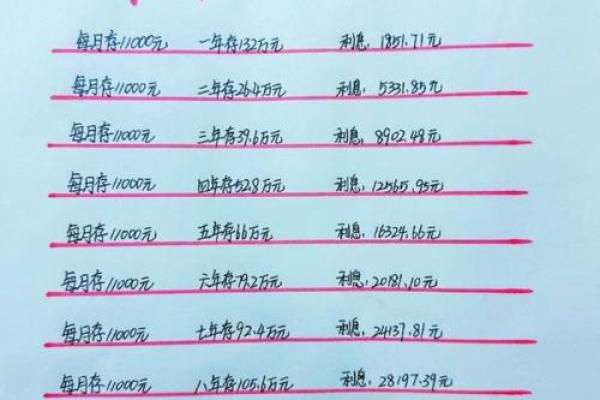 每月存11000元 一年存13.2万元 利息:1851.71元
每月存11000元 二年存26.4万元 利息:5331.85元
每月存11000元 三年存39.6万元 利息:8902.48元
每月存11000元 四年存52.8万元 利息:12565.95元
每月存11000元 五年存66万元 利息:16324.66元
每月存11000元 六年存79.2万元 利息:20181.10元
每月存11000元 七年存92.4万元 利息:24137.81元
每月存11000元 八年存105.6万元 利息:28197.39元